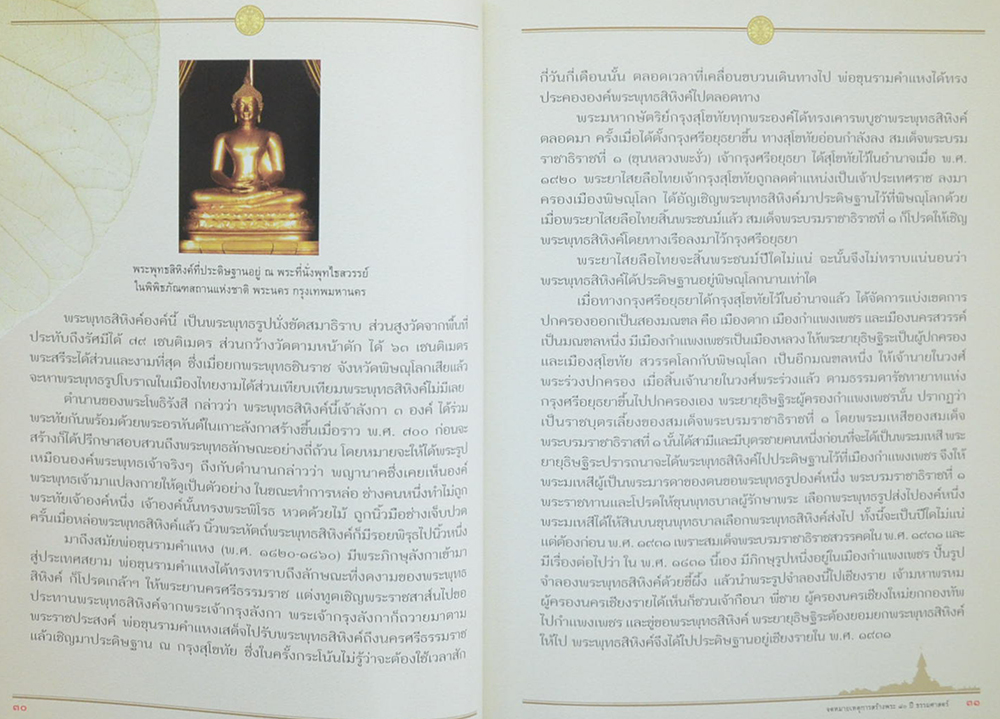 พระพุทธสิหิงค์ที่ประดิษฐานอยู่ ณ พระที่นั่งพุทไธสวรรย์
ในพิพิธภัณฑสถานแห่งชาติ พระนคร กรุงเทพมหานคร
พระพุทธสิหิงค์องค์นี้ เป็นพระพุทธรูปนั่งขัดสมาธิราบ ส่วนสูงวัดจากพื้นที่
ประทับถึงรัศมีได้ ๗๙ เซนติเมตร ส่วนกว้างวัดตามหน้าตัก ได้ ๖๓ เซนติเมตร
พระสรีระได้ส่วนและงามที่สุด ซึ่งเมื่อยกพระพุทธชินราช จังหวัดพิษณุโลกเสียแล้ว
จะหาพระพุทธรูปโบราณในเมืองไทยงามได้ส่วนเทียบเทียมพระพุทธสิหิงค์ไม่มีเลย
ตำนานของพระโพธิรังสี กล่าวว่า พระพุทธสิหิงค์นี้เจ้าลังกา ๓ องค์ ได้ร่วม
พระทัยกันพร้อมด้วยพระอรหันต์ในเกาะลังกาสร้างขึ้นเมื่อราว พ.ศ. ๗๐๐ ก่อนจะ
สร้างก็ได้ปรึกษาสอบสวนถึงพระพุทธลักษณะอย่างถี่ถ้วน โดยหมายจะให้ได้พระรูป
เหมือนองค์พระพุทธเจ้าจริงๆ ถึงกับตำนานกล่าวว่า พญานาคซึ่งเคยเห็นองค์
พระพุทธเจ้ามาแปลงกายให้ดูเป็นตัวอย่าง ในขณะทำการหล่อ ช่างคนหนึ่งทำไม่ถูก
พระทัยเจ้าองค์หนึ่ง เจ้าองค์นั้นทรงพระพิโรธ หวดด้วยไม้ ถูกนิ้วมือช่างเจ็บปวด
ครั้นเมื่อหล่อพระพุทธสิหิงค์แล้ว นิ้วพระหัตถ์พระพุทธสิหิงค์ก็มีรอยพิรุธไปนิ้วหนึ่ง
มาถึงสมัยพ่อขุนรามคำแหง (พ.ศ. ๑๘๒๐-๑๘๖๐) มีพระภิกษุลังกาเข้ามา
สู่ประเทศสยาม พ่อขุนรามคำแหงได้ทรงทราบถึงลักษณะที่งดงามของพระพุทธ
สิหิงค์ ก็โปรดเกล้าฯ ให้พระยานครศรีธรรมราช แต่งทูตเชิญพระราชสาส์นไปขอ
ประทานพระพุทธสิหิงค์จากพระเจ้ากรุงลังกา พระเจ้ากรุงลังกาก็ถวายมาตาม
พระราชประสงค์ พ่อขุนรามคำแหงเสด็จไปรับพระพุทธสิหิงค์ถึงนครศรีธรรมราช
แล้วเชิญมาประดิษฐาน ณ กรุงสุโขทัย ซึ่งในครั้งกระโน้นไม่รู้ว่าจะต้องใช้เวลาสัก
๓๐
กี่วันกี่เดือนนั้น ตลอดเวลาที่เคลื่อนขบวนเดินทางไป พ่อขุนรามคำแหงได้ทรง
ประคององค์พระพุทธสิหิงค์ไปตลอดทาง
พระมหากษัตริย์กรุงสุโขทัยทุกพระองค์ได้ทรงเคารพบูชาพระพุทธสิหิงค์
ตลอดมา ครั้งเมื่อได้ตั้งกรุงศรีอยุธยาขึ้น ทางสุโขทัยอ่อนกำลังลง สมเด็จพระบรม
ราชาธิราชที่ ๑ (ขุนหลวงพะงั่ว) เจ้ากรุงศรีอยุธยา ได้สุโขทัยไว้ในอำนาจเมื่อ พ.ศ.
๑๙๒๐ พระยาไสยลือไทยเจ้ากรุงสุโขทัยถูกลดตำแหน่งเป็นเจ้าประเทศราช ลงมา
ครองเมืองพิษณุโลก ได้อัญเชิญพระพุทธสิหิงค์มาประดิษฐานไว้ที่พิษณุโลกด้วย
เมื่อพระยาไสยลือไทยสิ้นพระชนม์แล้ว สมเด็จพระบรมราชาธิราชที่ ๑ ก็โปรดให้เชิญ
พระพุทธสิหิงค์โดยทางเรือลงมาไว้กรุงศรีอยุธยา
พระยาไสยลือไทยจะสิ้นพระชนม์ปีใดไม่แน่ ฉะนั้นจึงไม่ทราบแน่นอนว่า
พระพุทธสิหิงค์ได้ประดิษฐานอยู่พิษณุโลกนานเท่าใด
เมื่อทางกรุงศรีอยุธยาได้กรุงสุโขทัยไว้ในอำนาจแล้ว ได้จัดการแบ่งเขตการ
ปกครองออกเป็นสองมณฑล คือ เมืองตาก เมืองกำแพงเพชร และเมืองนครสวรรค์
เป็นมณฑลหนึ่ง มีเมืองกำแพงเพชรเป็นเมืองหลวง ให้พระยายุธิษฐิระเป็นผู้ปกครอง
และเมืองสุโขทัย สวรรคโลกกับพิษณุโลก เป็นอีกมณฑลหนึ่ง ให้เจ้านายในวงศ์
พระร่วงปกครอง เมื่อสิ้นเจ้านายในวงศ์พระร่วงแล้ว ตามธรรมดารัชทายาทแห่ง
กรุงศรีอยุธยาขึ้นไปปกครองเอง พระยายุธิษฐิระผู้ครองกำแพงเพชรนั้น ปรากฏว่า
เป็นราชบุตรเลี้ยงของสมเด็จพระบรมราชาธิราชที่ ๑ โดยพระมเหสีของสมเด็จ
พระบรมราชาธิราสที่ ๑ นั้นได้สามีและมีบุตรชายคนหนึ่งก่อนที่จะได้เป็นพระมเหสี พระ
ยายุธิษฐิระปรารถนาจะได้พระพุทธสิหิงค์ไปประดิษฐานไว้ที่เมืองกำแพงเพชร จึงให้
พระมเหสีผู้เป็นพระมารดาของตนขอพระพุทธรูปองค์หนึ่ง พระบรมราชาธิราชที่ ๑
พระราชทานและโปรดให้ขุนพุทธบาลผู้รักษาพระ เลือกพระพุทธรูปส่งไปองค์หนึ่ง
พระมเหสีได้ให้สินบนขุนพุทธบาลเลือกพระพุทธสิหิงค์ส่งไป ทั้งนี้จะเป็นปีใดไม่แน่
แต่ต้องก่อน พ.ศ. ๑๙๓๑ เพราะสมเด็จพระบรมราชาธิราชสวรรคตใน พ.ศ. ๑๙๓๑ และ
มีเรื่องต่อไปว่า ใน พ.ศ. ๑๔๓๑ นี้เอง มีภิกษุรูปหนึ่งอยู่ในเมืองกำแพงเพชร ปั้นรูป
จำลองพระพุทธสิหิงค์ด้วยขี้ผึ้ง แล้วนำพระรูปจำลองนี้ไปเชียงราย เจ้ามหาพรหม
ผู้ครองนครเชียงรายได้เห็นก็ชวนเจ้ากือนา พี่ชาย ผู้ครองนครเชียงใหม่ยกกองทัพ
ไปกำแพงเพชร และขู่ขอพระพุทธสิหิงค์ พระยายุธิษฐิระต้องยอมยกพระพุทธสิหิงค์
ให้ไป พระพุทธสิหิงค์จึงได้ไปประดิษฐานอยู่เชียงรายใน พ.ศ. ๑๙๓๑
จดหมายเหตุการสร้างพระ ๘๐ ปี ธรรมศาสตร์ ๓๑